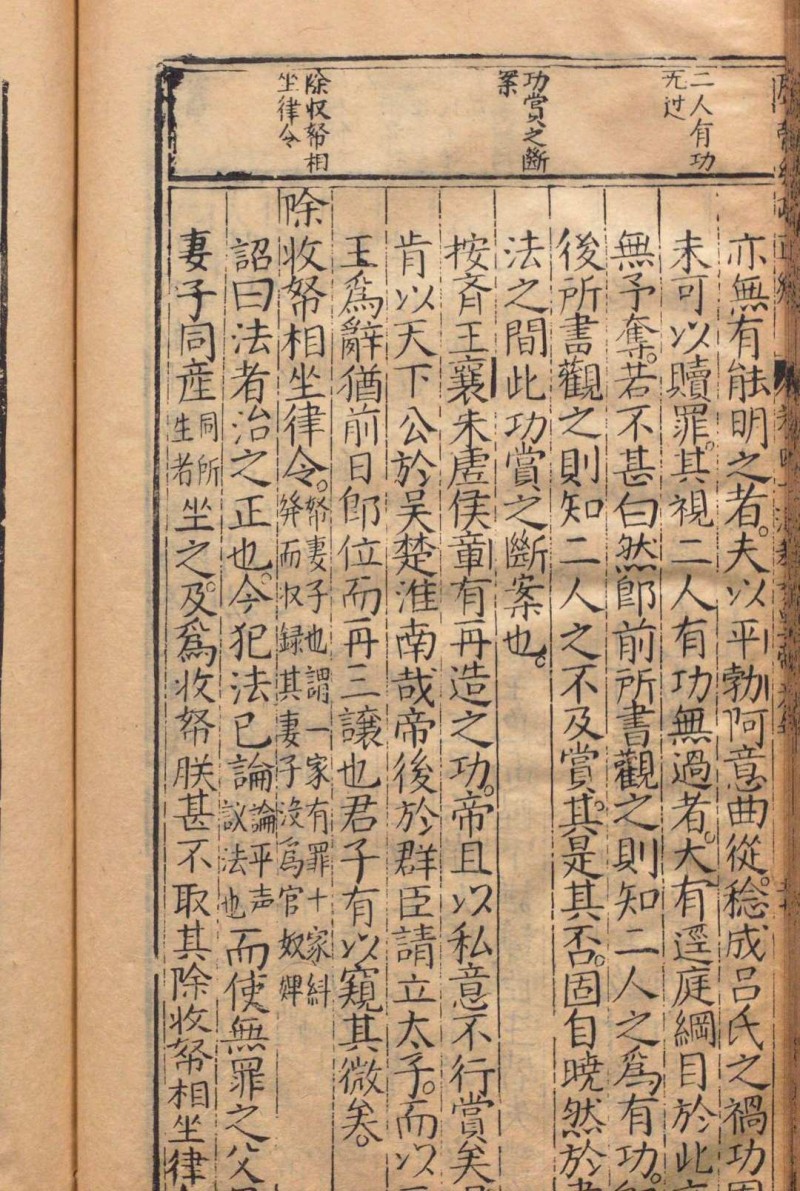 二人有功
无过
功賞之斷
案
除収帑相
坐律令
亦無有能明之者。夫以平勃阿意曲從。稔成呂氏之禍功
未可以贖罪。其視二人有功無過者。大有逕庭綱目於此
無予奪。若不甚白然即前所書觀之則知二人之爲有功。
後所書觀之則知二人之不及賞。其是其否。固自曉然於
法之間此功賞之斷案也。
按齊王襄朱虗侯章有再造之功。帝且以私意不行賞矣
肯以天下公於吴楚淮南哉帝後於群臣請立太子。而以
王爲辭猶前日即位而再三讓也君子有以窺其微矣。
除收帑相坐律令。帑妻子也謂一家有罪十家糾
舉而収録其妻子没爲官奴婢
詔曰法者治之正也。今犯法已論論平声
議法也而使無罪之父
妻子同産同所
生者坐之。及爲收帑朕甚不取其除收帑相坐律